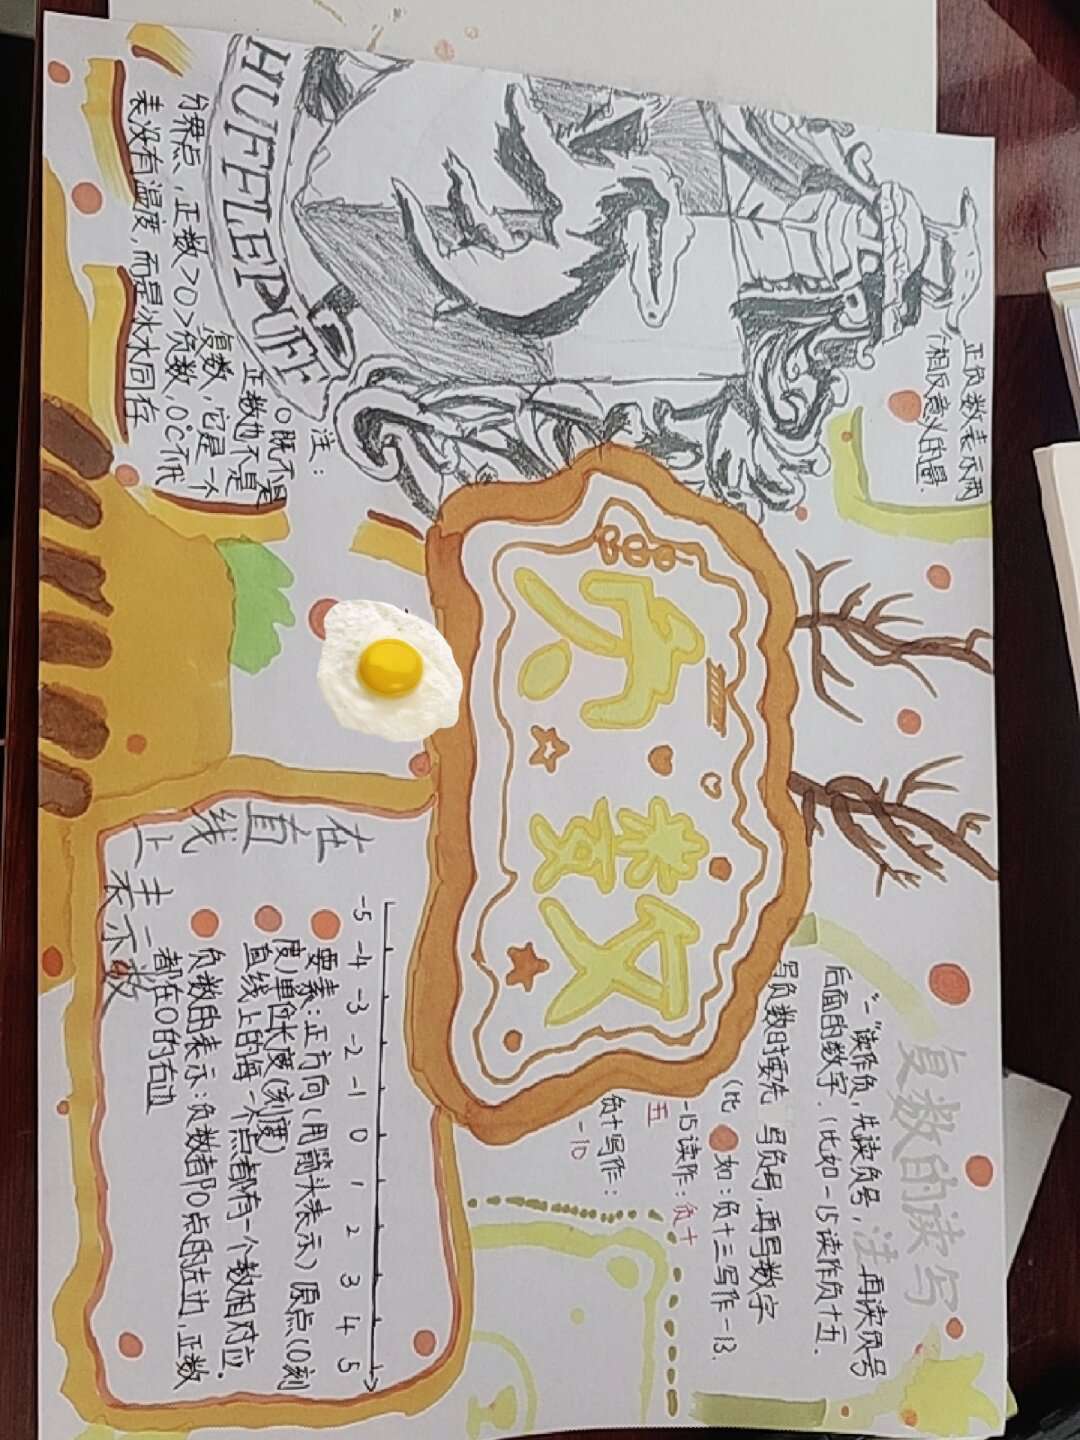 HUFFLEPUFF
正负数表示两
个相反意义的量.
注：
0既不是
正数也不是
复数，它是一个
分界点，正数>0>负数，0℃不代
表没有温度，而是冰水同存
负数
复数的读写
"-"读作负，先读负号，再读负号
后面的数字.(比如-15读作负十五.
注
写负数时要先写负号，再写数字
(比如:负十三写作-13.
-15读作:负十
五
负十写作:
-10
在
直
线
上
表示数
-5 -4 -3 -2 -1 0 1 2 3 4 5
要素:正方向(用箭头表示)原点(0刻
度)单位长度(刻度)
直线上的每一个点都有一个数相对应.
负数的表示:负数都即0点的左边,正数
都在0的右边